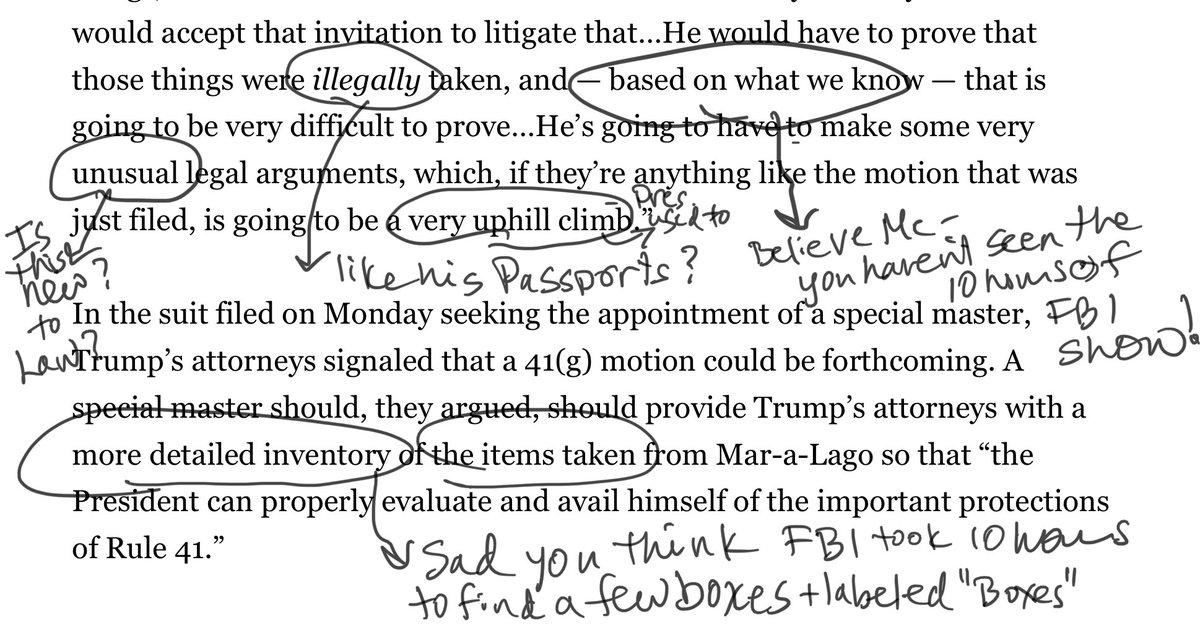 would accept that invitation to litigate that...He would have to prove that
those things were illegally taken, and — based on what we know — that is
going to be very difficult to prove...He’s going to have to make some very
unusual legal arguments, which, if they’re anything like the motion that was
just filed, is going to be a very uphill climb.”
Pres.
used to
Is
this
new?
to
Law?
like his Passports?
Believe Me -
you haven't seen the
10 hours of
FBI
show!
In the suit filed on Monday seeking the appointment of a special master,
Trump’s attorneys signaled that a 41(g) motion could be forthcoming. A
special master should, they argued, should provide Trump’s attorneys with a
more detailed inventory of the items taken from Mar-a-Lago so that “the
President can properly evaluate and avail himself of the important protections
of Rule 41.”
Sad you think FBI took 10 hours
to find a few boxes + labeled "Boxes"